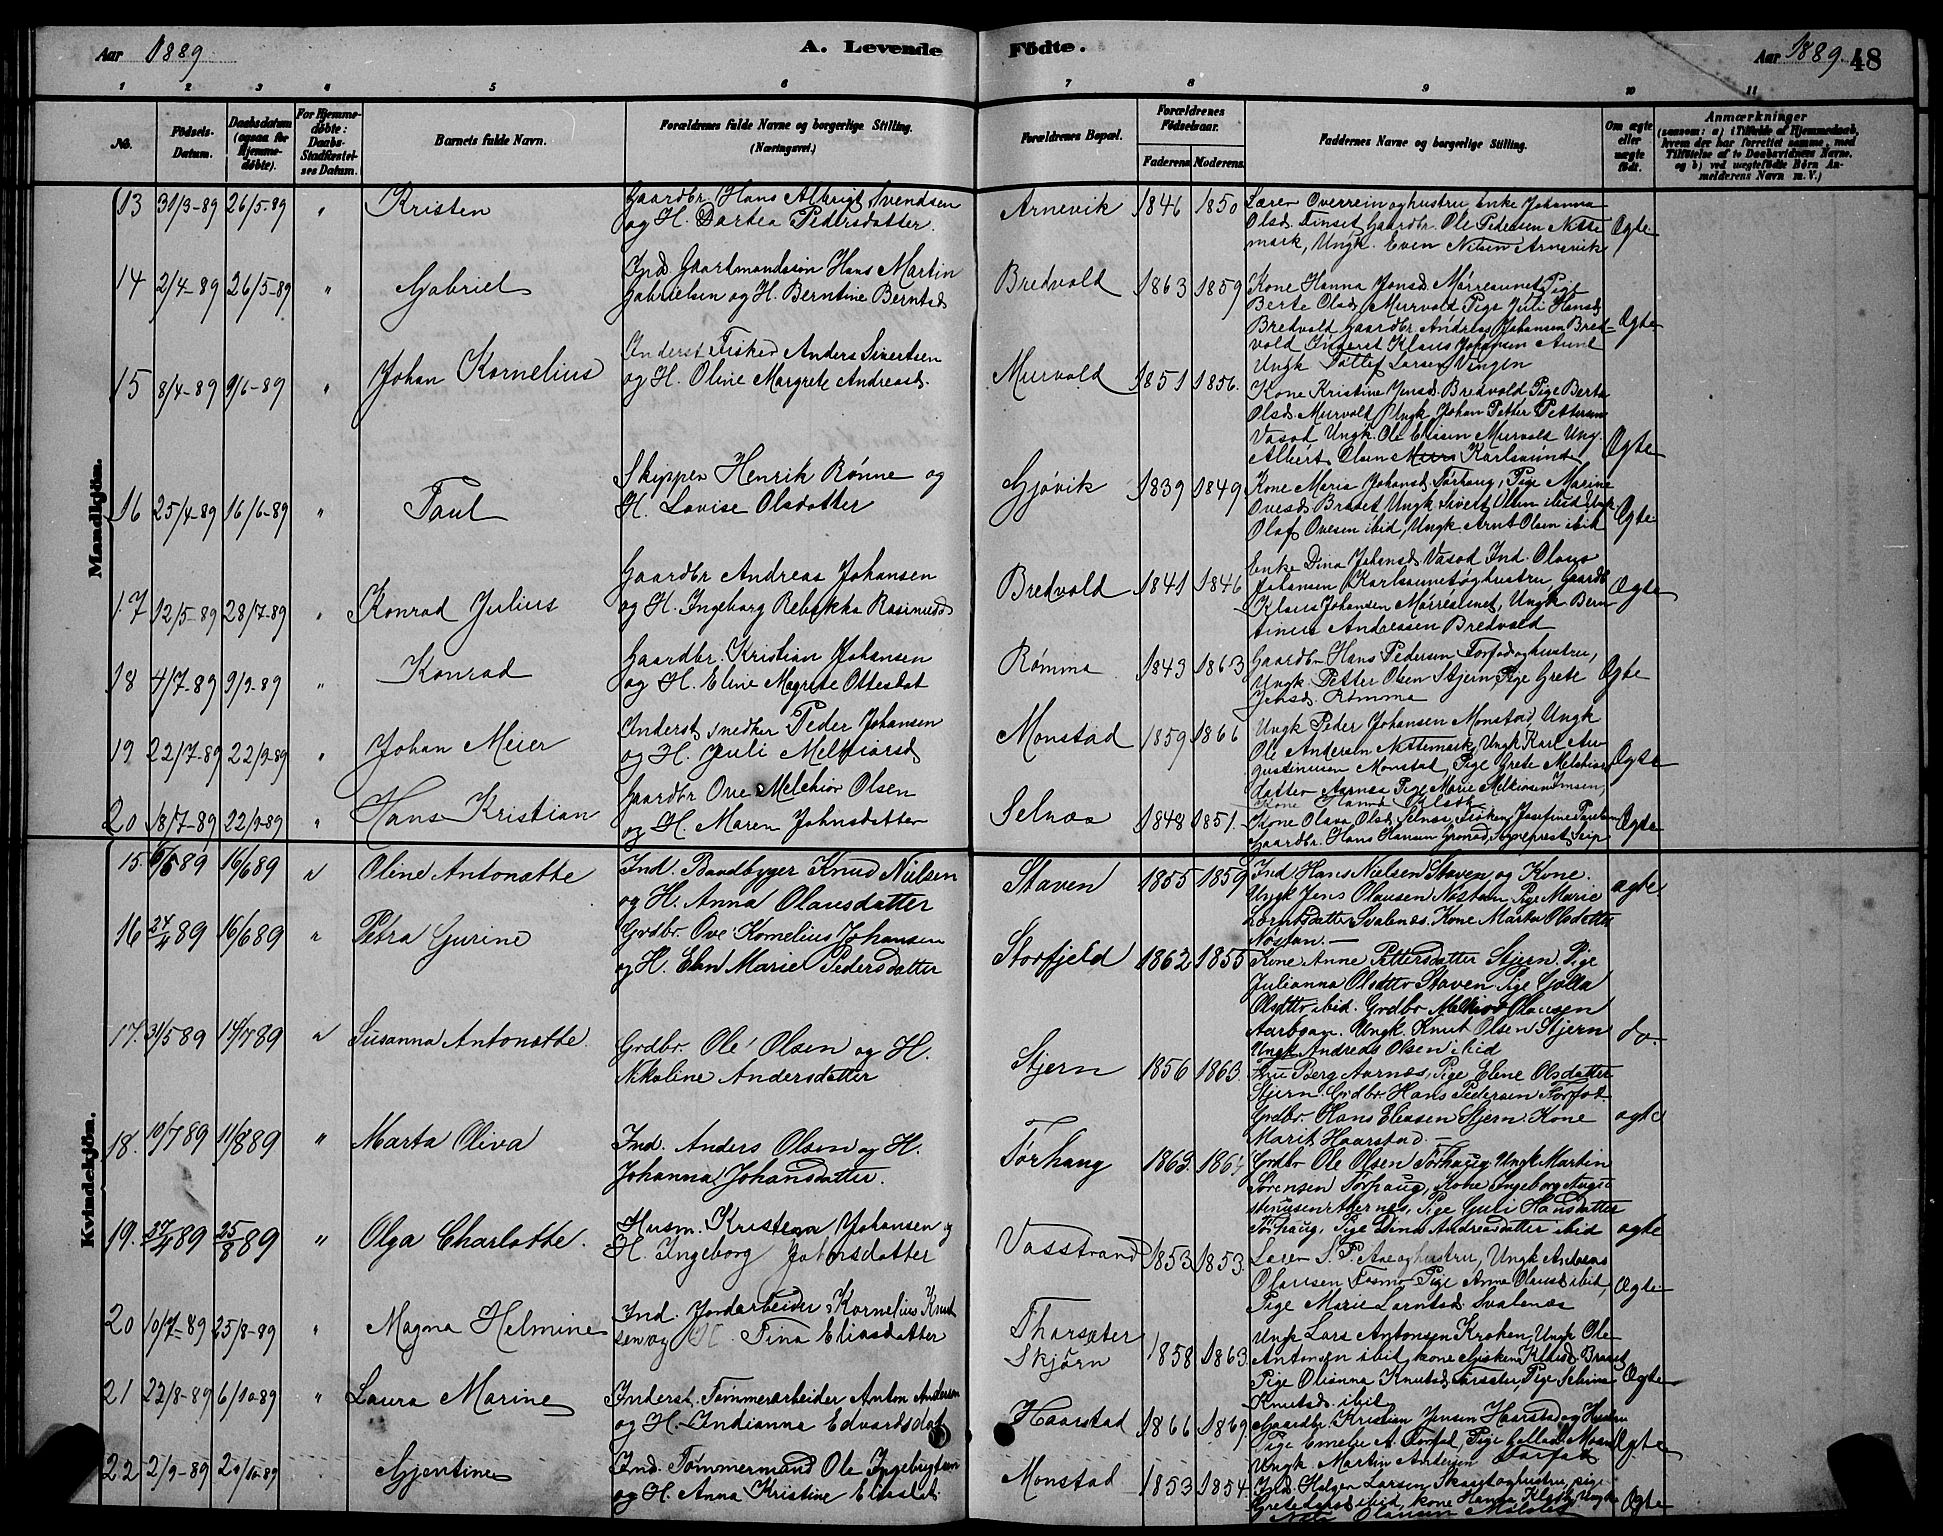 Aar 1889
A. Levende Födte.
Aar 1889. 48
1 2 3 4 5 6 7 8 9 10 11
No.
Födsels-Datum.
Daabsdatum (ogsaa for Hjemme-døbte).
For Hjemme-døbte: Daabs-Stadfæstel-ses Datum.
Barnets fulde Navn.
Forældrenes fulde Navne og borgerlige Stilling.
(Næringsvei.)
Forældrenes Bopæl.
Forældrenes Födselsaar.
Faderens Moderens
Faddernes Navne og borgerlige Stilling.
Om ægte eller uægte født.
Anmærkninger
(saasom: a) i Tilfælde af Hjemmedaab, hvem der har forrettet samme, med Tilföielse af to Daabsvidners Navne, og b) ved uægtefödte Börn An-melderens Navn m. V.)
Mandkjön.
13 31/3-89 26/5-89 " Kristen
Gaardbr. Hans Albrigt Svendsen
og H. Dartea Pedersdatter.
Arnevik 1846 1850
Lærer Overrein og hustru, Enke Johanna
Olsd. Finset Gaardbr. Ole Pedersen Nitte
mark, Ungk. Even Nilsen Arnevik
Ægte
14 2/4-89 26/5-89 " Gabriel
Ind. Gaardmandssøn Hans Martin
Gabrielsen og H. Berntine Berntsd.
Bredvold 1863 1859
Kone Hanna Jonsd. Mørreaunet Pige
Berte Olsd. Murvold Pige Juli Hansd.
Bredvold Gaardbr. Andreas Johansen Bred-
vold Inderst Klaus Johansen Aune
Ungk Tollef Larsen Vingen
Ægte
15 8/4-89 9/6-89 " Johan Kornelius
Inderst Fisker Anders Sivertsen
og H. Oline Margrete Andreasd.
Murvold 1851 1856.
Kone Kristine Jensd. Bredvold Pige Berta
Olsd. Murvold Ungk Johan Petter Pettersen
Vasod Ungk. Ole Elisen Murvold Ung.
Albert Olsen Karlsaunet
Ægte
16 25/4-89 16/6-89 " Paul
Skipper Henrik Rønne og
H. Lovise Olsdatter
Gjøvik 1839 1849
Kone Maria Johansd. Tørhaug, Pige Marine
Ovesd. Braset Ungk Sivert Olsen ibid Ungk
Olaf Ovesen ibid, Ungk Arnt Olsen ibid
Ægte
17 12/5-89 28/7-89 " Konrad Julius
Gaardbr Andreas Johansen
og H. Ingeborg Rebekka Rasmusd.
Bredvold 1841 1846
Enke Dina Johansd. Vasod Ind. Olaus
Johansen Karlsaunet og hustru, Gaardb
Klaus Johansen Mørreaunet, Ungk Bern
tinus Andreasen Bredvold
Ægte
18 4/7-89 9/9-89 " Konrad
Gaardbr. Kristian Johansen
og H. Eline Magrete Ottesdat
Rømma 1843 1863
Gaardbr Hans Pedersen Forfod og hustru,
Ungk Petter Olsen Stjern, Pige Grete
Jensd. Rømma
Ægte
19 22/7-89 22/9-89 " Johan Meier
Inderst Snedker Peder Johansen
og H. Juli Melkiorsd
Monstad 1859 1866
Ungk Peder Johansen Monstad, Ungk
Ole Andersen Nittemark, Ungk Karl Au-
gustinusen Monstad, Pige Grete Melchior
datter Aarnes Pige Marie Melkiorsen
Ægte
20 18/7-89 22/9-89 " Hans Kristian
Gaardbr Ove Melchior Olsen
og H. Maren Johnsdatter
Selnæs 1848 1851
Kone Olava Olsd. Selnæs Josefine
Gaardbr. Hans Hansen
Ægte
Kvindekjön.
15 6/5 89 16/6 89 " Oline Antonette
Ind. Baadbygger Knud Nielsen
og H. Anna Olausdatter
Staven 1855 1859
Ind. Hans Nielsen Staven og Kone.
Ungk Jens Olausen Nostan Pige Marie
Lorntsdatter Svalenæs. Kone Marta Olsdatter
Nostan. —
ægte.
16 24/4 89 16/6 89 " Petra Gurine
Grdbr. Ove Kornelius Johansen
og H. Elen Marie Pedersdatter
Storfjeld 1862 1855
Kone Anne Pettersdatter Stjern. Pige
Julianna Olsdttr Staven. Pige Golla
Olsdttr ibid. Grdbr Melkior Olausen
Aarbogen. Ungk. Knut Olsen Stjern
Ungk Andreas Olsen ibid
do.
17. 31/5 89 14/7 89 " Susanna Antonette.
Grdbr. Ole Olsen og H.
Nikoline Andersdatter
Stjern 1856 1863.
Fru Berg Aarnæs, Pige Elene Olsdatter
Stjern. Grdbr. Hans Pedersen Forfot
Grdbr. Hans Eliasen Stjern. Kone
Marit Haarstad. —
ægte
18. 10/7 89 11/8 89 " Marta Oliva
Ind. Anders Olsen og H.
Johanna Johansdatter.
Tørhaug 1863. 1864
Grdbr Ole Olsen Tørhaug. Ungk Martin
Sørensen Tørhaug, Kone Ingeborg
Pige Guli Hansdatter
Tørhaug, Pige Dina Andreasdatter ibid
ægte
19. 27/4 89 25/8 89 " Olga Charlotte.
Husm. Kristen Johansen og
H. Ingeborg Johnsdatter
Vasstrand 1853 1853.
Lærer S. P. Aae og hustru, Ungk Andreas
Olausen Fosmo Pige Anna Olausd ibid,
Pige Marie Larntsd. Svalenæs
Ægte
20 10/7-89 25/8-89 " Magna Helmine
Ind. Jordarbeider Kornelius Knud
sen og H. Tina Eliasdatter
Tharsæter
Skjörn 1858 1863.
Ungk Lars Antonsen Kroken, Ungk Ole
Antonsen ibit, kone Braset
Pige Olianna Knutsd. Pige
Knutsd. ibit
Ægte
21 22/8-89 6/10-89 " Laura Marine
Inderst. Tømmerarbeider Anton Andersen
og H. Indianna Edvardsdat
Haarstad 1866 1869
Gaardbr Kristian Jensen Haarstad og Hustru
Pige Emelie A. Forfot, Pige
Ungk Martin Andersen Forfot
Ægte
22 2/9-89 20/10-89 Gjentine
Ind. Tømmermand Ole Ingebrigtsen
og H. Anna Kristine Eliasdat.
Monstad 1853 1854
Ind. Holger Larsen og hustru, pige
ibid, kone Hanna
Olausen
Ægte